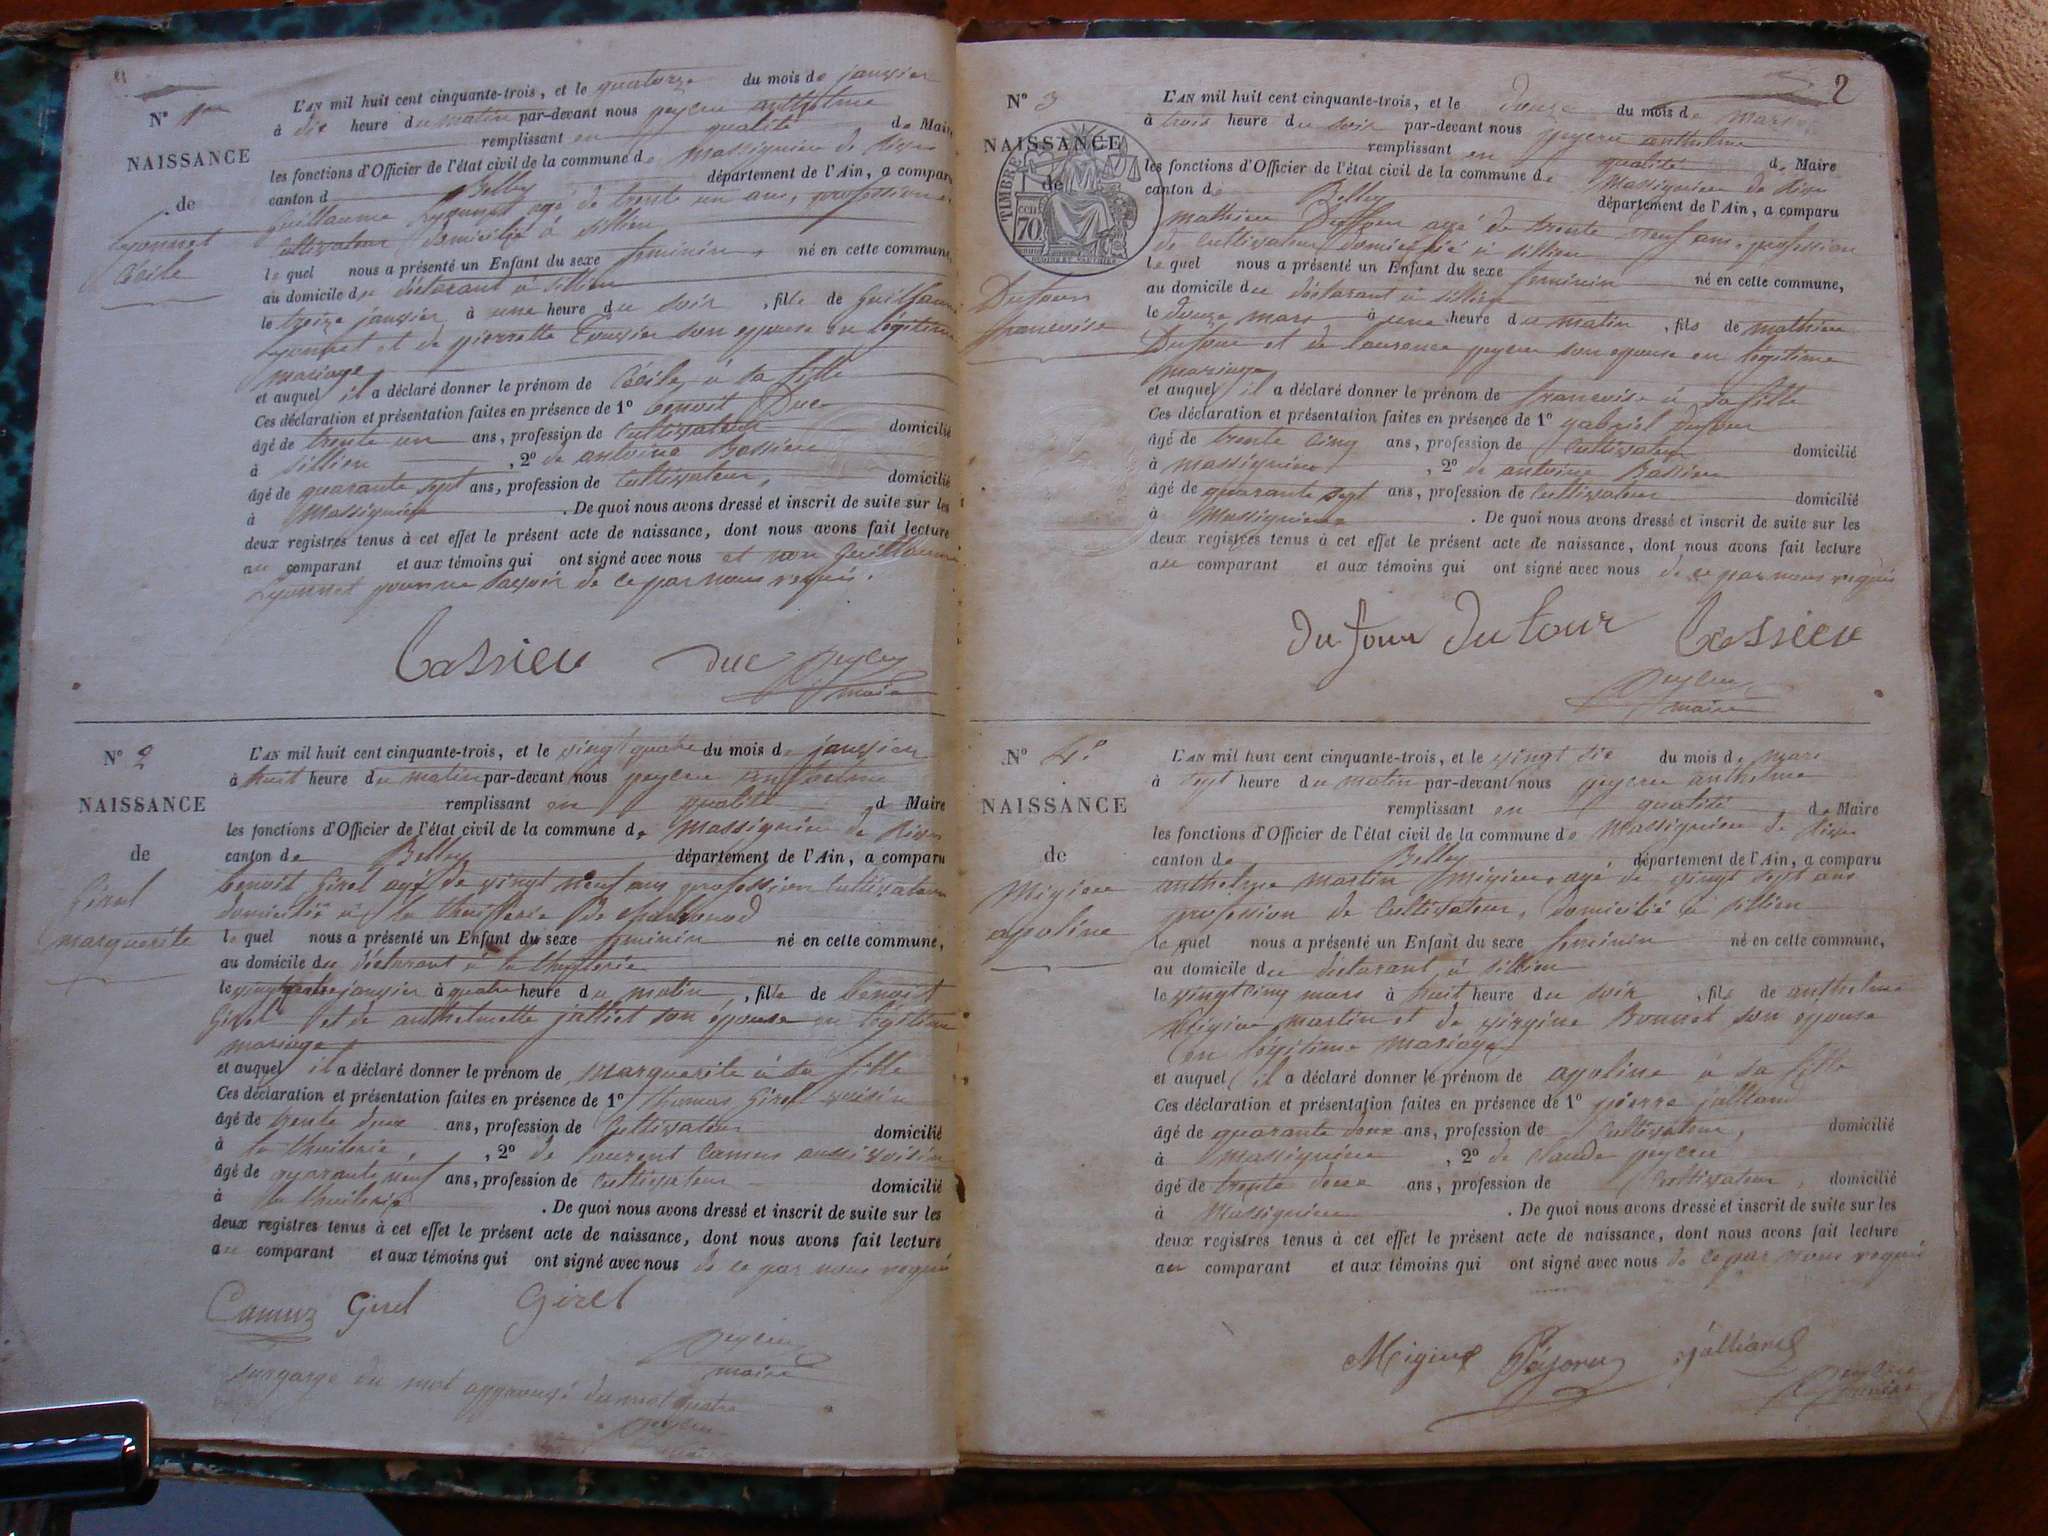 N° 1er
NAISSANCE
de
Lyonnet
Cécile
L'AN mil huit cent cinquante-trois, et le quatorze du mois de janvier
à dix heure du matin par-devant nous peycru anthelme
remplissant en qualité de Maire
les fonctions d'Officier de l'état civil de la commune de Massignieu de Rives
canton d Belley département de l'Ain, a comparu
Guillaume Lyonnet agé de trente un ans, profession
Cultivateur domicilié à Sillieu
lequel nous a présenté un Enfant du sexe feminin, né en cette commune,
au domicile du déclarant à Sillieu
le treize janvier à une heure du soir, fille de Guillaume
Lyonnet et de pierrette son epouse en légitime
mariage
et auquel il a déclaré donner le prénom de Cécile à sa fille
Ces déclaration et présentation faites en présence de 1° benoit Duc
âgé de trente un ans, profession de Cultivateur domicilié
à Sillieu, 2° de antoine Bassieu
âgé de quarante sept ans, profession de Cultivateur, domicilié
à Massignieu. De quoi nous avons dressé et inscrit de suite sur les
deux registres tenus à cet effet le présent acte de naissance, dont nous avons fait lecture
au comparant et aux témoins qui ont signé avec nous et non Guillaume
Lyonnet pour ne savoir de ce par nous requis.
Bassieu duc peycru
maire
N° 2
NAISSANCE
de
Girel
marguerite
L'AN mil huit cent cinquante-trois, et le vingt quatre du mois de janvier
à huit heure du matin par-devant nous peycru anthelme
remplissant en qualité d Maire
les fonctions d'Officier de l'état civil de la commune de Massignieu de Rives
canton de Belley département de l'Ain, a comparu
benoit Girel agé de vingt neuf ans profession Cultivateur
domicilié à la thuillerie de
lequel nous a présenté un Enfant du sexe feminin né en cette commune,
au domicile du déclarant à la thuilerie
le vingt quatre janvier à quatre heure du matin, fille de benoit
Girel et de anthelmette julliet son epouse en légitime
mariage
et auquel il a déclaré donner le prénom de marguerite à sa fille
Ces déclaration et présentation faites en présence de 1° thomas Girel voisin
âgé de trente deux ans, profession de Cultivateur domicilié
à la thuilerie, 2° de laurent Camus aussi voisin
âgé de quarante neuf ans, profession de Cultivateur domicilié
à la thuilerie. De quoi nous avons dressé et inscrit de suite sur les
deux registres tenus à cet effet le présent acte de naissance, dont nous avons fait lecture
au comparant et aux témoins qui ont signé avec nous de ce par nous requis
Camuz Girel Girel
peycru
maire
surcharge du mot approuvé du mot quatre
peycru
maire
2
N° 3
NAISSANCE
de
TIMBRE
70
Dufour
francoise
L'AN mil huit cent cinquante-trois, et le douze du mois de mars
à trois heure du soir par-devant nous peycru anthelme
remplissant en qualité de Maire
les fonctions d'Officier de l'état civil de la commune de Massignieu de Rives
canton de Belley département de l'Ain, a comparu
mathieu Duffour agé de trente neuf ans, profession
de Cultivateur domicilié à Sillieu
lequel nous a présenté un Enfant du sexe feminin né en cette commune,
au domicile du déclarant à Sillieu
le douze mars à une heure du matin, fils de mathieu
Dufour et de laurence peycru son epouse en légitime
mariage
et auquel il a déclaré donner le prénom de francoise à sa fille
Ces déclaration et présentation faites en présence de 1° gabriel Dufour
âgé de trente cinq ans, profession de Cultivateur domicilié
à massignieu, 2° de antoine Bassieu
âgé de quarante sept ans, profession de Cultivateur domicilié
à Massignieu. De quoi nous avons dressé et inscrit de suite sur les
deux registres tenus à cet effet le présent acte de naissance, dont nous avons fait lecture
au comparant et aux témoins qui ont signé avec nous de ce par nous requis
dufour dufour Bassieu
peycru
maire
N° 4
NAISSANCE
de
Migieu
apoline
L'AN mil huit cent cinquante-trois, et le vingt six du mois de mars
à sept heure du matin par-devant nous peycru anthelme
remplissant en qualité de Maire
les fonctions d'Officier de l'état civil de la commune de Massignieu de Rives
canton de Belley département de l'Ain, a comparu
anthelme martin migieu, agé de vingt sept ans
profession de Cultivateur, domicilié à Sillieu
lequel nous a présenté un Enfant du sexe feminin né en cette commune,
au domicile du déclarant à Sillieu
le vingt cinq mars à huit heure du soir, fils de anthelme
Migieu martin et de virginie Bonnet son epouse
en légitime mariage
et auquel il a déclaré donner le prénom de apoline à sa fille
Ces déclaration et présentation faites en présence de 1° pierre julliand
âgé de quarante deux ans, profession de Cultivateur, domicilié
à Massignieu, 2° de claude peycru
âgé de trente deux ans, profession de Cultivateur, domicilié
à Massignieu. De quoi nous avons dressé et inscrit de suite sur les
deux registres tenus à cet effet le présent acte de naissance, dont nous avons fait lecture
au comparant et aux témoins qui ont signé avec nous de ce par nous requis
Migieu julliand peycru
maire